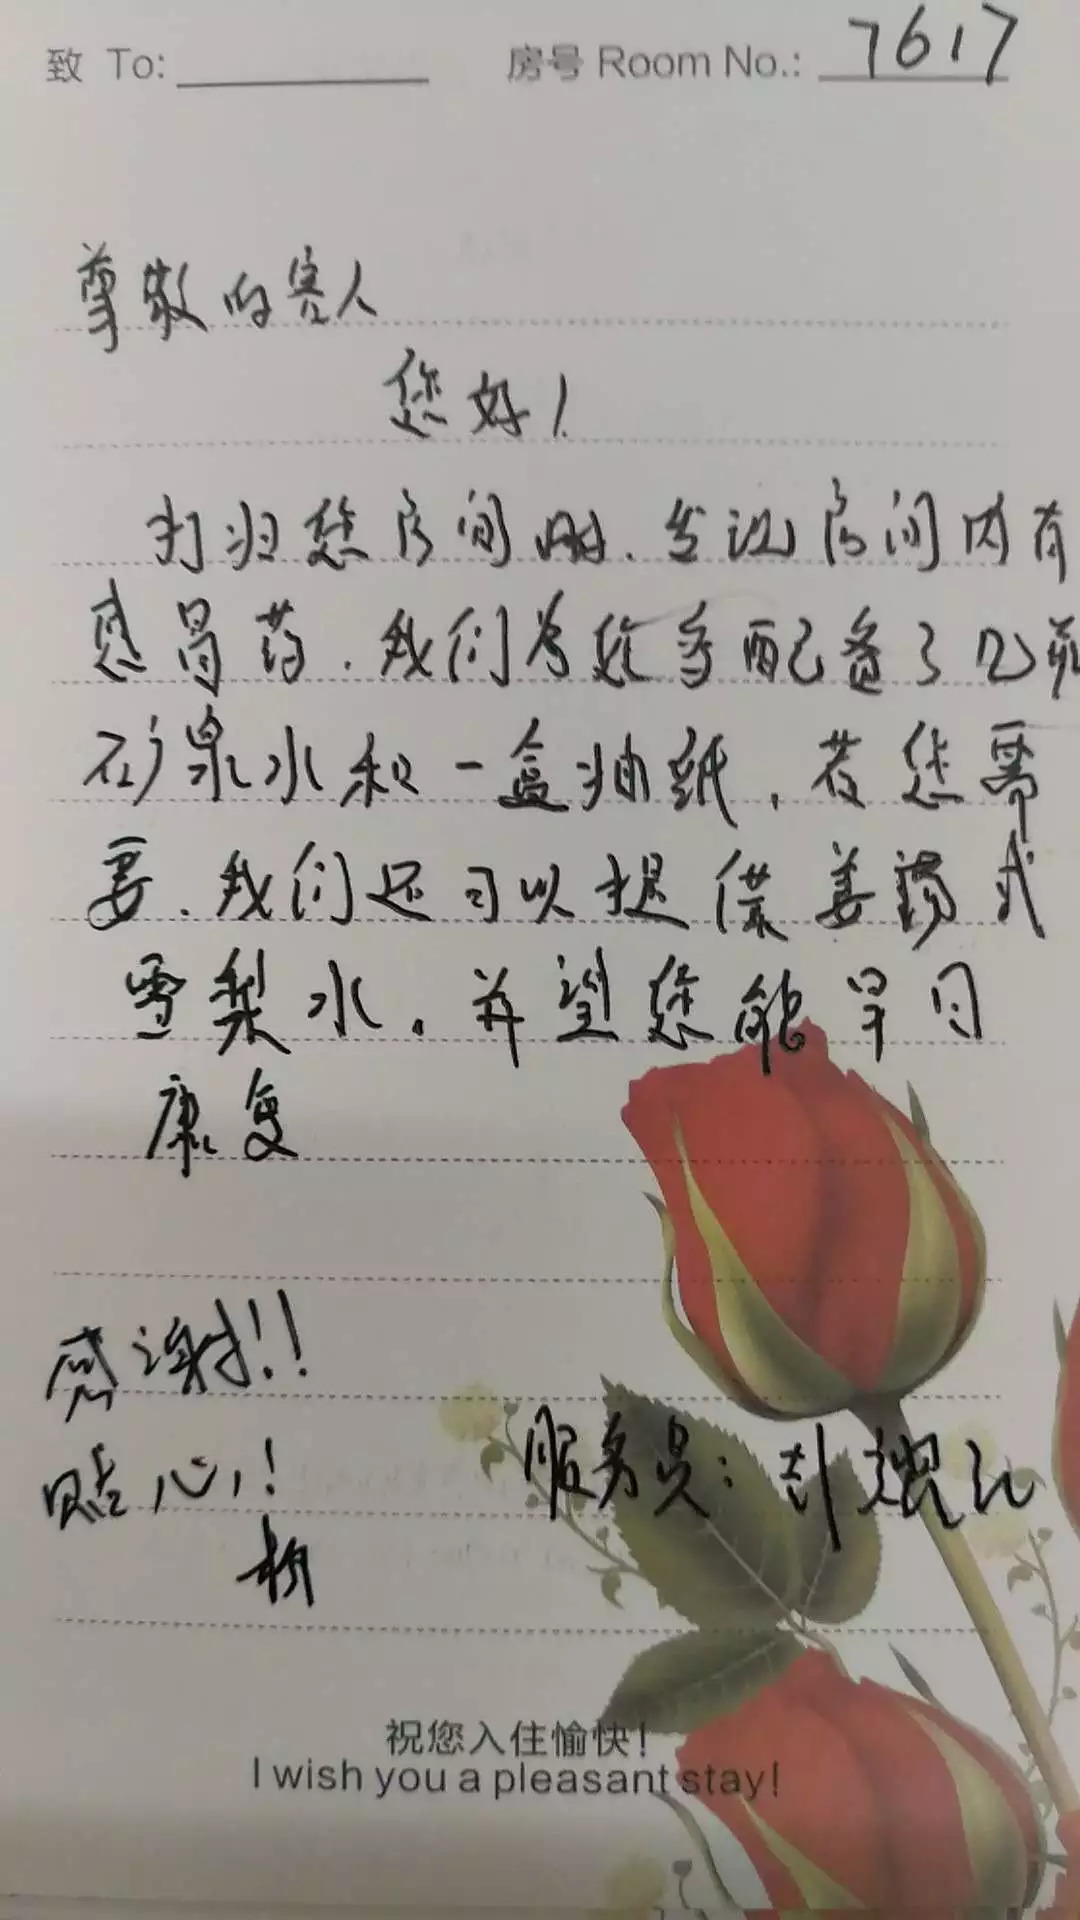 致 To: 房号 Room No.: 7617
尊敬的客人
您好!
打扫您房间时,发现房间内有
感冒药,我们为您多配备了几瓶
矿泉水和一盒抽纸,若您需
要,我们还可以提供姜汤或
雪梨水,并望您能早日
康复
感谢!!
贴心!
服务员:
祝您入住愉快!
I wish you a pleasant stay!